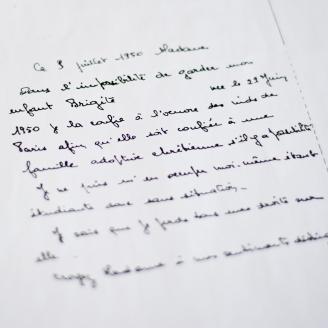 Ce 3 juillet 1950 Madame
Dans l'impossibilité de garder mon
enfant Brigite née le 22 Juin
1950 je la confie à l'oeuvre des nids de
Paris afin qu'elle soit confiée à une
famille adoptive chrétienne s'il y a possibilité
Je ne puis m'en occuper moi-même étant
étudiante donc sans situation.
Je sais que je perds tous mes droits sur
elle.
Croyez Madame à mes sentiments